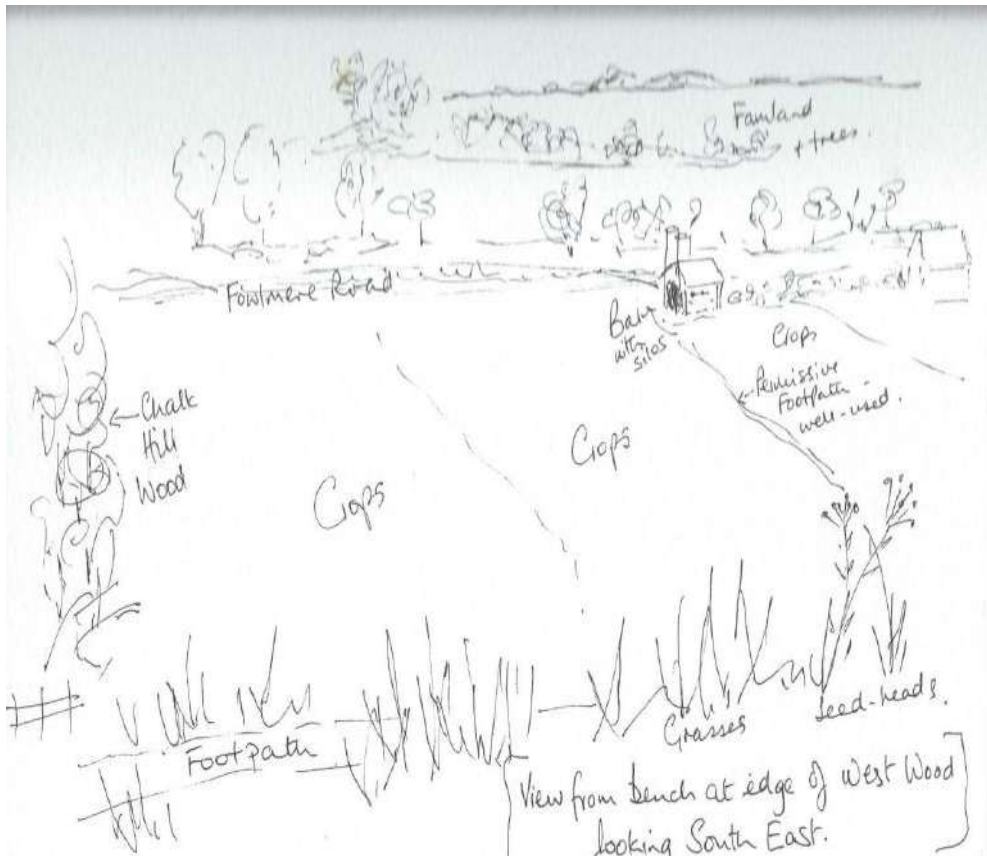 Farmland
+ trees.
Fowlmere Road
Barn
with
silos
Crops
Permissive
Footpath
well-used.
Chalk
Hill
Wood
Crops
Crops
Grasses
Seed-heads.
Footpath
View from bench at edge of West Wood
looking South East.